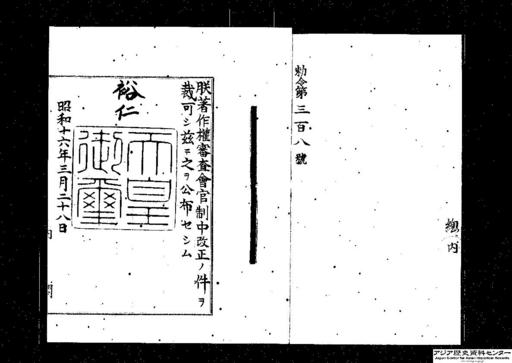 勅令第三百八號
總、内
朕著作權審査會官制中改正ノ件ヲ
裁可シ茲ニ之ヲ公布セシム
裕仁
天皇
御璽
昭和十六年三月二十八日
内閣
アジア歴史資料センター
Japan Center for Asian Historical Records